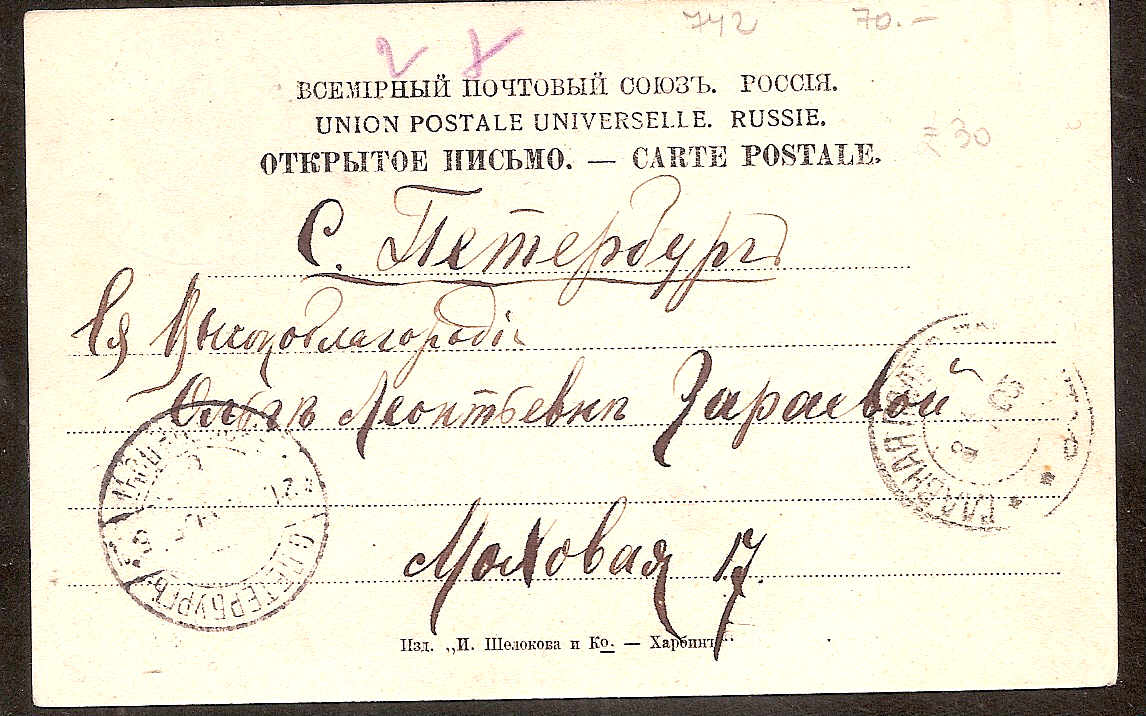 742 70.-
ВСЕМІРНЫЙ ПОЧТОВЫЙ СОЮЗЪ. РОССІЯ.
UNION POSTALE UNIVERSELLE. RUSSIE.
30
ОТКРЫТОЕ ПИСЬМО. — CARTE POSTALE.
С. Петербургъ
Ея Высокоблагородію
Ольгѣ Леонтьевнѣ Зараевой
ГЛАВНАЯ
Моховая 17.
С.ПЕТЕРБУРГЪ
Изд. „И. Шелокова и Ко. — Харбинъ"